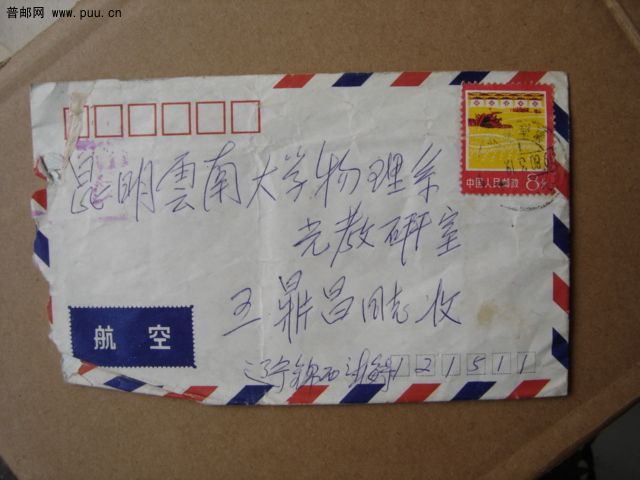 普邮网 www.puu.cn
昆明雲南大学物理系
光教研室
王鼎昌同志收
航空
辽宁锦西
121511
中国人民邮政
8分